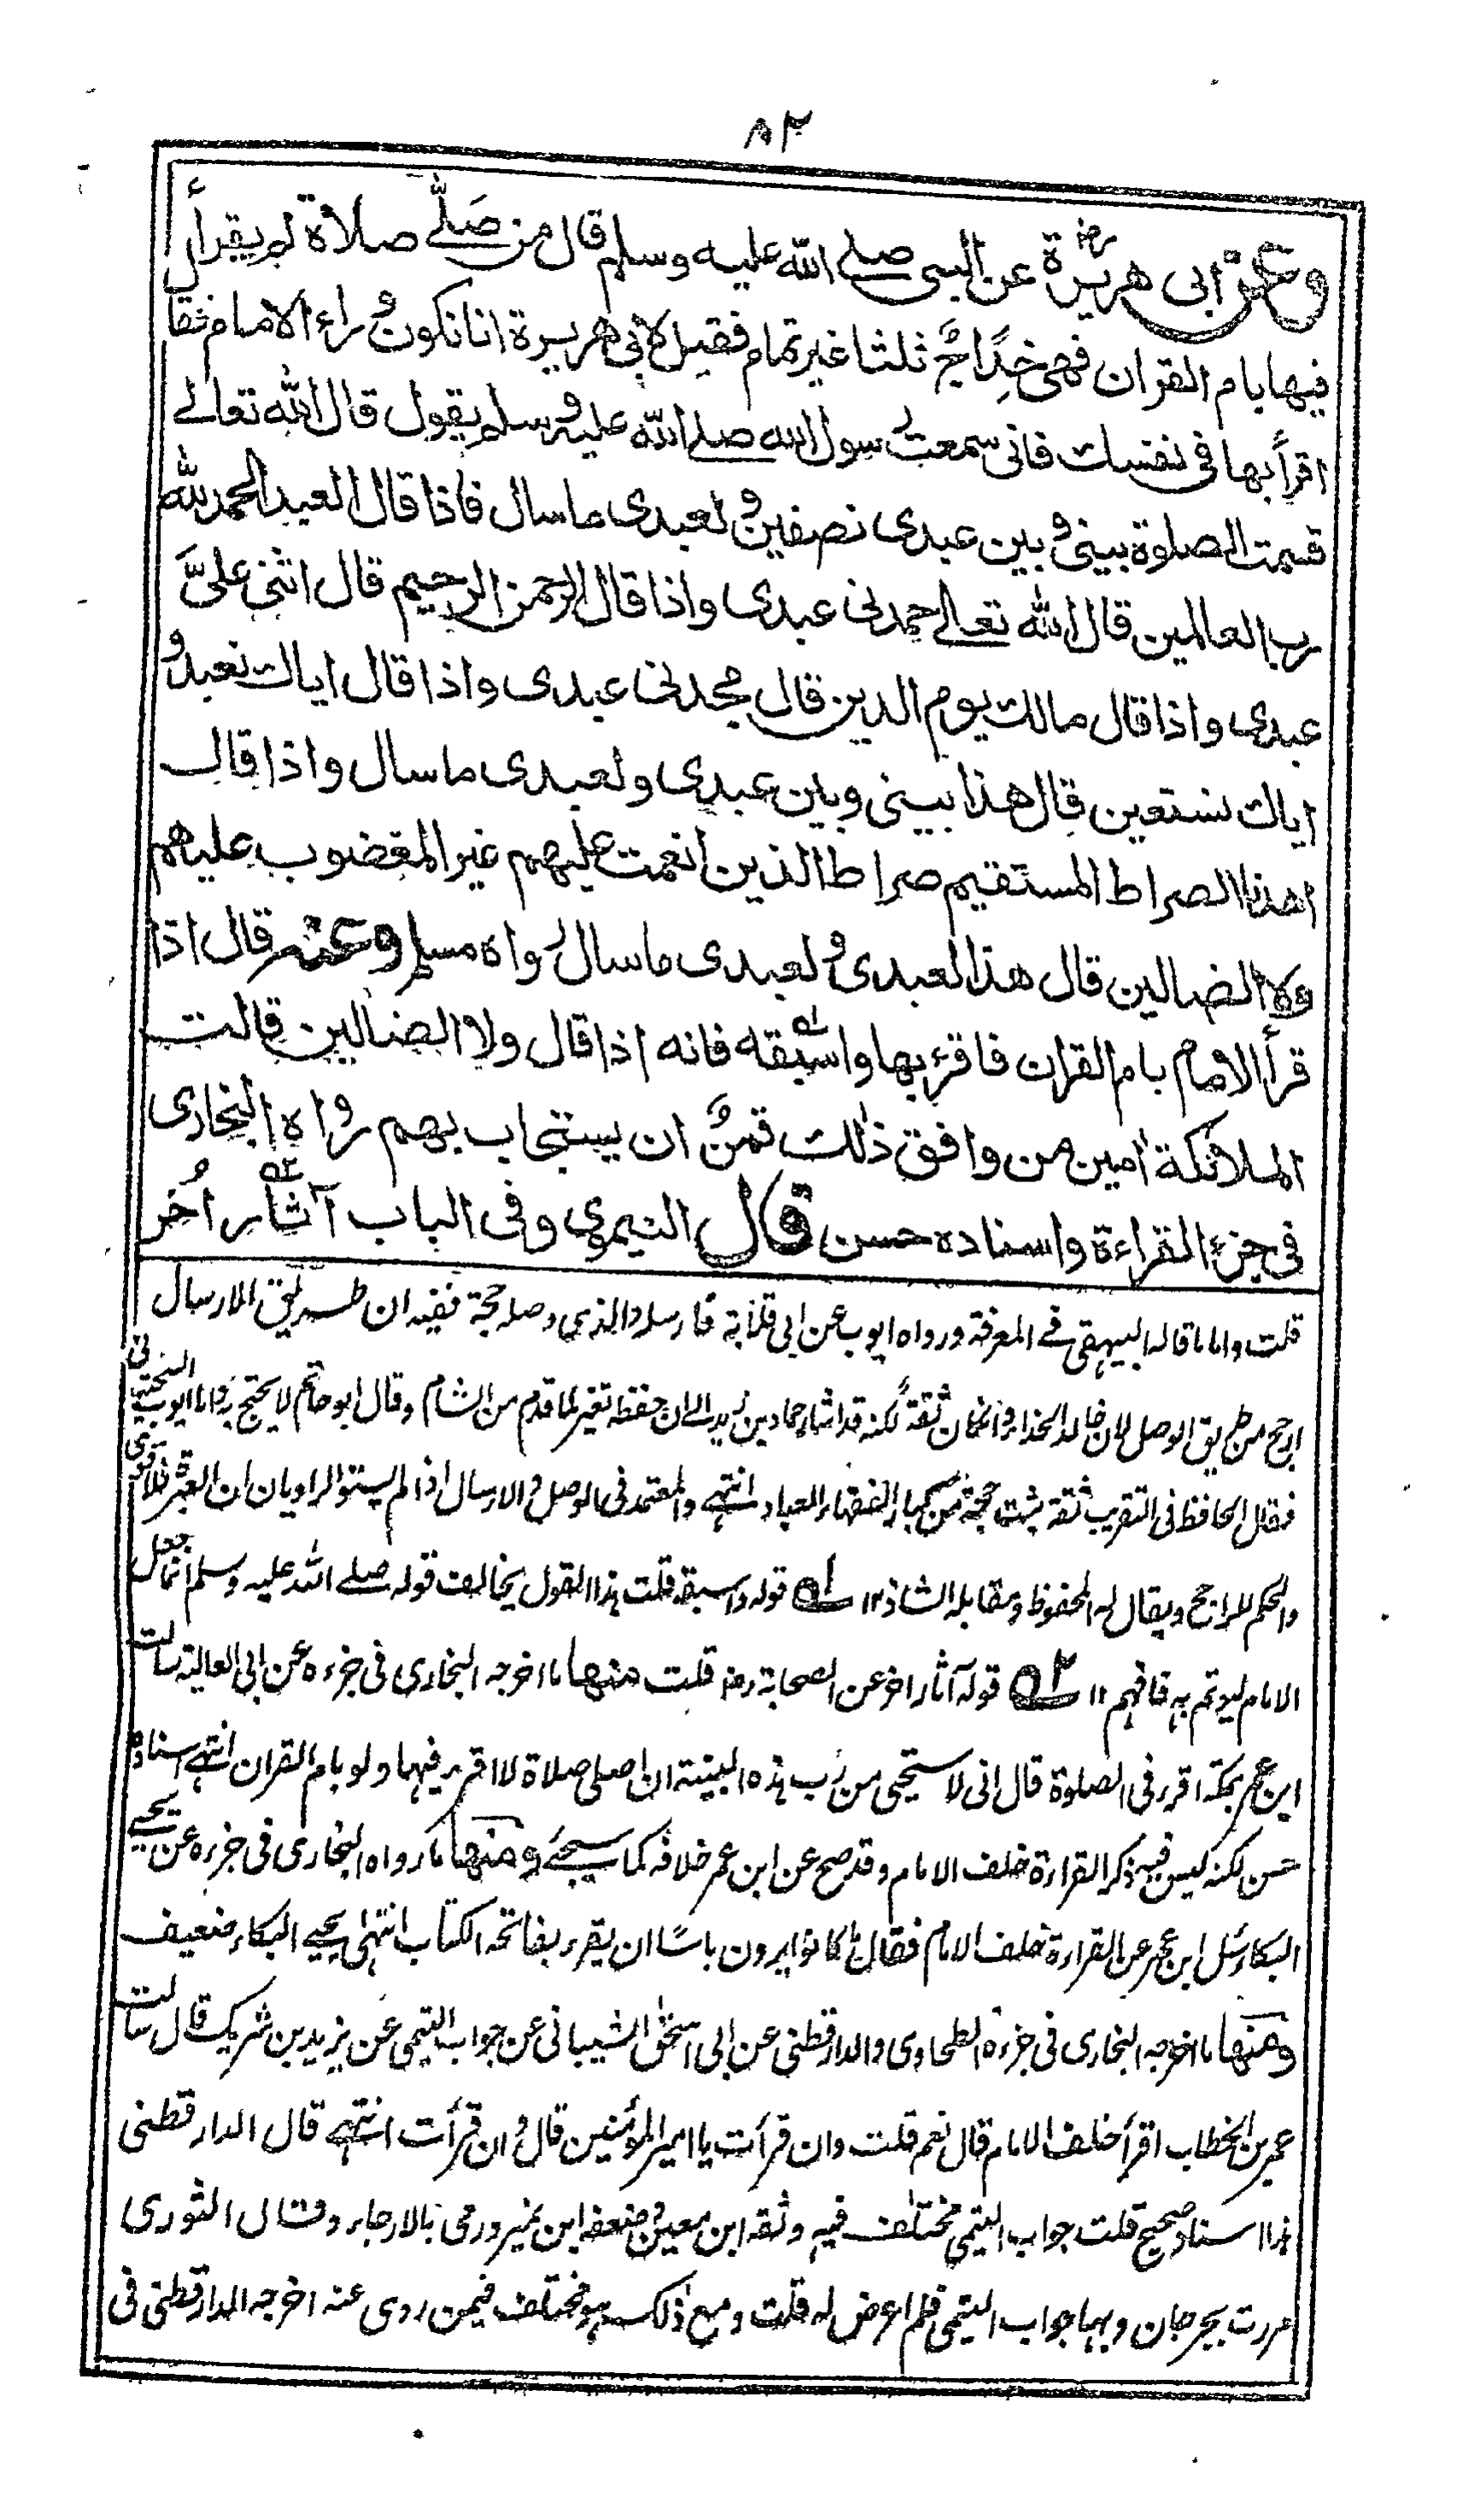 ٨٢
وعن ابى هريرة رض عن النبى صلے الله عليه وسلم قال من صَلّٰے صلاة لم يقرأ
فيها بام القران فهى خِدَاجٌ ثلثا غير تمام فقيل لابى هريرة انا نكون وراء الامام فقال
اقرأ بها فى نفسك فانى سمعت رسول الله صلے الله عليه وسلم يقول قال الله تعالے
قسمت الصلوة بينى و بين عبدى نصفين و لعبدى ما سال فاذا قال العبد الحمد لله
رب العالمين قال الله تعالے حمدنى عبدى واذا قال الرحمن الرحيم قال اثنى علىَّ
عبدى واذا قال مالك يوم الدين قال مجدنى عبدى واذا قال اياك نعبد و
اياك نستعين قال هذا بينى وبين عبدى ولعبدى ما سال واذا قال
اهدنا الصراط المستقيم صراط الذين انعمت عليهم غير المغضوب عليهم
ولا الضالين قال هذا لعبدى و لعبدى ما سال رواه مسلم وعنه قال اذا
قرأ الامام بام القران فاقرء بها واسبقه ١ه فانه اذا قال ولا الضالين قالت
الملائكة اٰمين من وافق ذٰلك قمنٌ ان يستجاب بهم رواه البخارى
فى جزء القراءة واسناده حسن قال النيموى وفى الباب آثار ٢ه اُخر
قلت واما ما قاله البيهقى فے المعرفة ورواه ايوب عن ابى قلابة فارسله والذى وصله حجة ففيه ان طريق الارسال
ارجح من طريق الوصل لان خالد الحذاء وان كان ثقة لكنه قد اشار حماد بن زيد الے ان حفظه تغير لما قدم من الشام وقال ابو حاتم لا يحتج به واما ايوب السختيانى
فقال الحافظ فى التقريب ثقة ثبت حجة من كبار الفقهاء العباد انتهے والمعتمد فى الوصل والارسال اذا لم يستو الراويان ان العبرة للاقوى
والحكم للراجح ويقال له المحفوظ ومقابله الشاذ ١٢ ١ه قوله واسبقه قلت هذا القول يخالف قوله صلے الله عليه وسلم انما جعل
الامام ليوتم به فافهم ١٢ ٢ه قوله آثار اخر عن الصحابة رض قلت منها ما اخرجه البخارى فى جزءه عن ابى العالية سالت
ابن عمر بمكة اقرء فى الصلوة قال انى لاستحيى من رب هذه البينة ان اصلى صلاة لا اقرء فيها ولو بام القران انتهے اسناده
حسن لكنه ليس فيه ذكر القراءة خلف الامام وقد صح عن ابن عمر خلافه كما سيجئ ومنها ما رواه البخارى فى جزءه عن يحيے
البكاء سئل ابن عمر عن القراءة خلف الامام فقال ما كانوا يرون باسًا ان يقرء بفاتحة الكتاب انتهى يحيے البكاء ضعيف
ومنها ما اخرجه البخارى فى جزءه الطحاوى والدارقطنى عن ابى اسحٰق الشيبانى عن جواب التيمى عن يزيد بن شريك قال سالت
عمر بن الخطاب اقرأ خلف الامام قال نعم قلت وان قرأت يا امير المؤمنين قال وان قرأت انتهے قال الدارقطنى
هذا اسناد صحيح قلت جواب التيمى مختلف فيه وثقه ابن معين وضعفه ابن نمير ورمى بالارجاء وقال الثورى
مررت بجرجان وبها جواب التيمى فلم اعرض له قلت ومع ذٰلك هو مختلف فيمن روى عنه اخرجه الدارقطنى فى